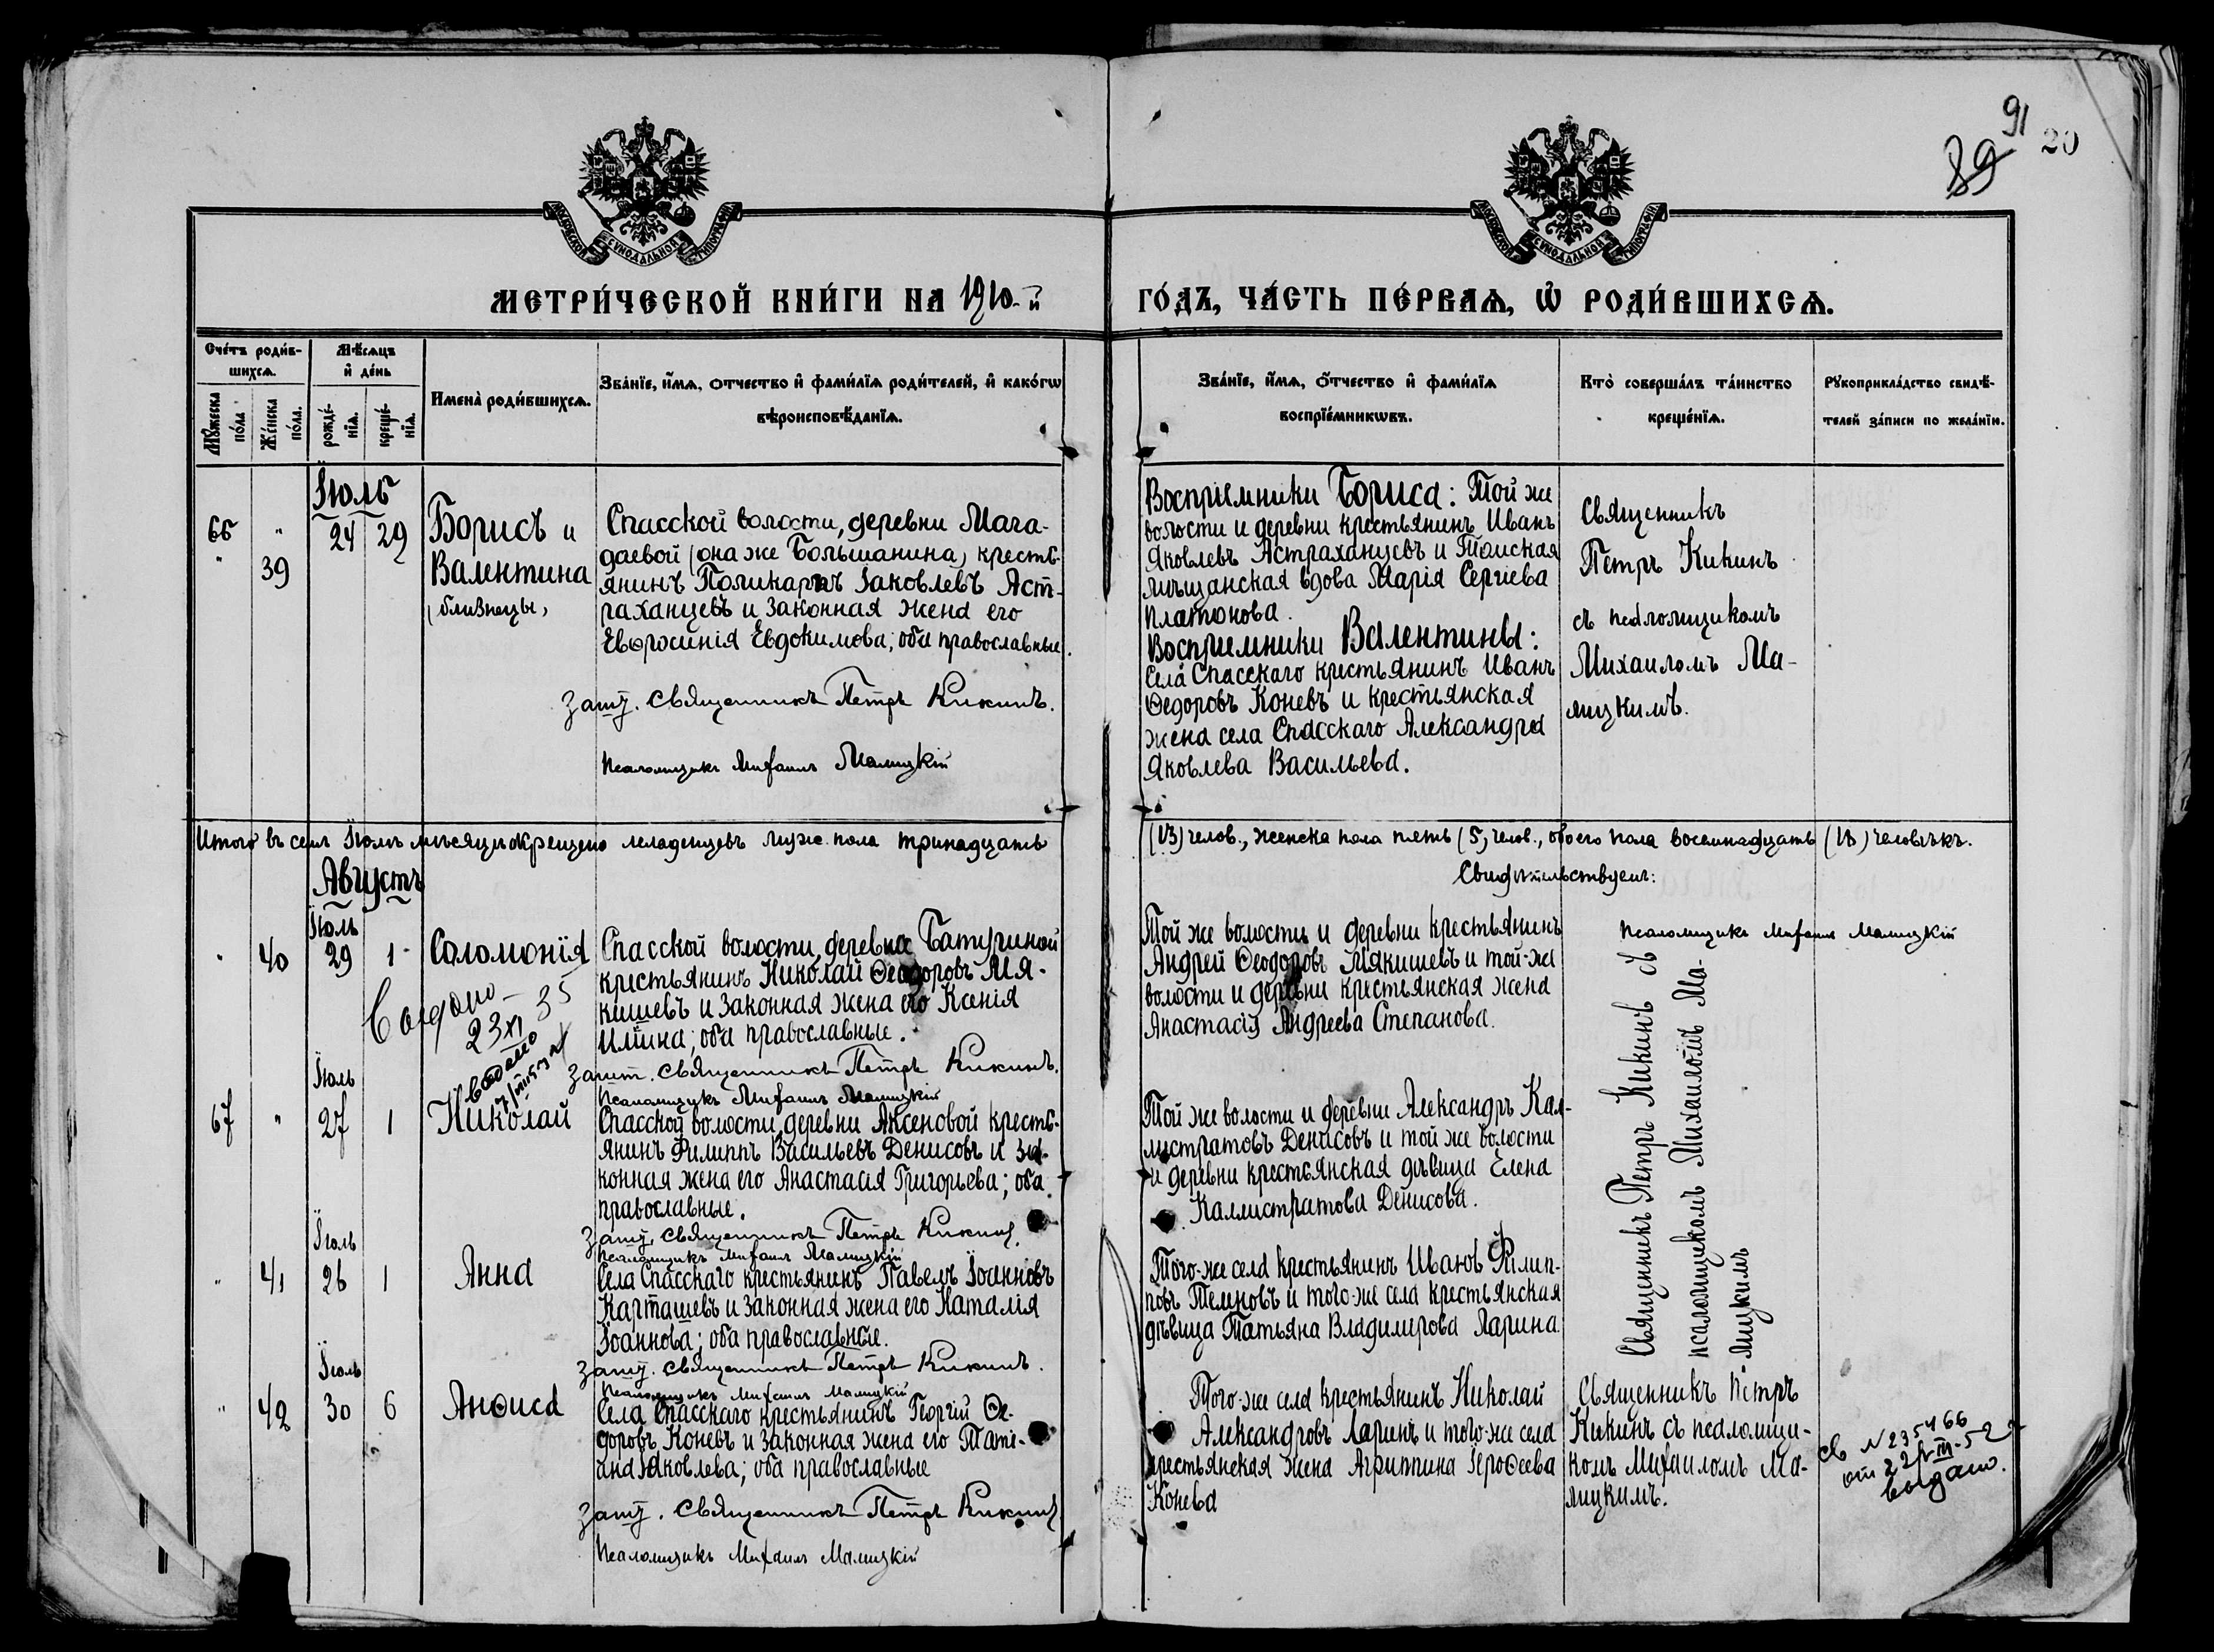 91
89
20
МОСКОВСКОЙ СѴНОДАЛЬНОЙ ТИПОГРАФІИ
МОСКОВСКОЙ СѴНОДАЛЬНОЙ ТИПОГРАФІИ
МЕТРИ́ЧЕСКОЙ КНИ́ГИ НА 1910-й
ГО́ДЪ, ЧА́СТЬ ПЕ́РВАѦ, Ѡ҆ РОДИ́ВШИХСѦ.
Сче́тъ роди́в-
шихсѧ.
Мꙋ́жеска по́ла
Же́нска по́ла.
Мѣ́сѧцъ
и҆ де́нь
рожде́-
нїѧ.
креще́-
нїѧ.
И҆мена̀ роди́вшихсѧ.
Зва́нїе, и҆́мѧ, ѻ҆́тчество и҆ фами́лїѧ роди́телей, и҆ како́гѡ
вѣроисповѣ́данїѧ.
Зва́нїе, и҆́мѧ, ѻ҆́тчество и҆ фами́лїѧ
воспрїе́мникѡвъ.
Кто̀ соверша́лъ та́инство
креще́нїѧ.
Рꙋкоприкла́дство свидѣ́-
телей за́писи по жела́нїю.
Іюль
66 " 24 29 Борисъ и
" 39 Валентина
(близнецы)
Спасской волости, деревни Мага-
даевой (она же Большанина) кресть-
янинъ Поликарпъ Іаковлевъ Аст-
раханцевъ и законная жена его
Евѳросинія Евдокимова; оба православные.
Зашт. Священникъ Петръ Кикинъ.
Псаломщикъ Михаилъ Малицкій
Воспріемники Бориса: Той же
волости и деревни крестьянинъ Иванъ
Яковлевъ Астраханцевъ и Томская
мѣщанская вдова Марія Сергіева
Платонова.
Воспріемники Валентины:
Села Спасскаго крестьянинъ Иванъ
Ѳедоровъ Коневъ и крестьянская
жена села Спасскаго Александра
Яковлева Васильева.
Священникъ
Петръ Кикинъ
съ псаломщикомъ
Михаиломъ Ма-
лицкимъ.
Итого въ семъ Іюлѣ мѣсяцѣ окрещено младенцевъ муж. пола тринадцать
(13) челов., женска пола пять (5) челов., обоего пола восемнадцать (18) человѣкъ.
Свидѣтельствуемъ:
Псаломщикъ Михаилъ Малицкій
Августъ
Іюль
" 40 29 1 Соломонія
Спасской волости, деревни Батуриной
крестьянинъ Николай Ѳеодоровъ Мя-
кишевъ и законная жена его Ксенія
Ильина; оба православные.
Зашт. Священникъ Петръ Кикинъ.
Псаломщикъ Михаилъ Малицкій
Выдано
23 XI 35
Той же волости и деревни крестьянинъ
Андрей Ѳеодоровъ Мякишевъ и той-же
волости и деревни крестьянская жена
Анастасія Андреева Степанова.
Священникъ Петръ Кикинъ съ
псаломщикомъ Михаиломъ Ма-
лицкимъ
Іюль
67 " 27 1 Николай
Спасской волости, деревни Аксеновой кресть-
янинъ Филиппъ Васильевъ Денисовъ и за-
конная жена его Анастасія Григорьева; оба
православные.
Зашт. Священникъ Петръ Кикинъ.
Псаломщикъ Михаилъ Малицкій
Той же волости и деревни Александръ Кал-
листратовъ Денисовъ и той же волости
и деревни крестьянская дѣвица Елена
Каллистратова Денисова.
Іюль
" 41 26 1 Анна
Села Спасскаго крестьянинъ Павелъ Іоанновъ
Карташевъ и законная жена его Наталія
Іоаннова; оба православные.
Зашт. Священникъ Петръ Кикинъ.
Псаломщикъ Михаилъ Малицкій
Того-же села крестьянинъ Иванъ Филип-
повъ Темновъ и того-же села крестьянская
дѣвица Татьяна Владимирова Ларина.
Іюль
" 42 30 6 Анѳиса
Села Спасскаго крестьянинъ Георгій Ѳе-
доровъ Коневъ и законная жена его Таті-
ана Яковлева; оба православные
Зашт. Священникъ Петръ Кикинъ
Псаломщикъ Михаилъ Малицкій
Того-же села крестьянинъ Николай
Александровъ Ларинъ и того-же села
крестьянская жена Агриппина Іероѳеева
Конева
Священникъ Петръ
Кикинъ съ псаломщи-
комъ Михаиломъ Ма-
лицкимъ.
св N 235466
от 22/III-52 г
выдано.